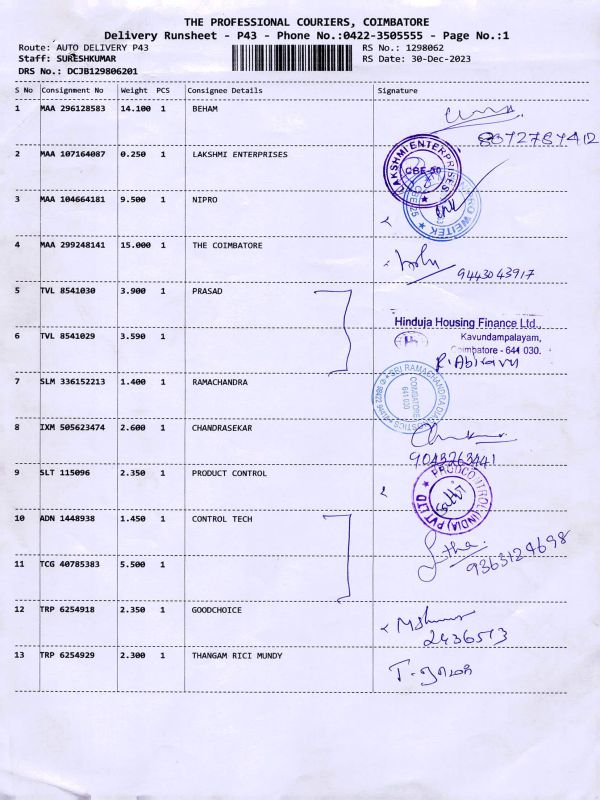 THE PROFESSIONAL COURIERS, COIMBATORE
Delivery Runsheet - P43 - Phone No.:0422-3505555 - Page No.:1
Route: AUTO DELIVERY P43 RS No.: 1298062
Staff: SURESHKUMAR RS Date: 30-Dec-2023
DRS No.: DCJB129806201
S No Consignment No Weight PCS Consignee Details Signature
1 MAA 296128583 14.100 1 BEHAM
8072767412
2 MAA 107164087 0.250 1 LAKSHMI ENTERPRISES
LAKSHMI ENTERPRISES
CBE-30
3 MAA 104664181 9.500 1 NIPRO
4 MAA 299248141 15.000 1 THE COIMBATORE
9443043917
5 TVL 8541030 3.900 1 PRASAD
Hinduja Housing Finance Ltd.,
Kavundampalayam,
6 TVL 8541029 3.590 1
Coimbatore - 641 030.
R. Abirami
7 SLM 336152213 1.400 1 RAMACHANDRA
COIMBATORE
641 030
8 IXM 505623474 2.600 1 CHANDRASEKAR
9043263441
9 SLT 115096 2.350 1 PRODUCT CONTROL
10 ADN 1448938 1.450 1 CONTROL TECH
9363124698
11 TCG 40785383 5.500 1
12 TRP 6254918 2.350 1 GOODCHOICE
2436513
13 TRP 6254929 2.300 1 THANGAM RICI MUNDY